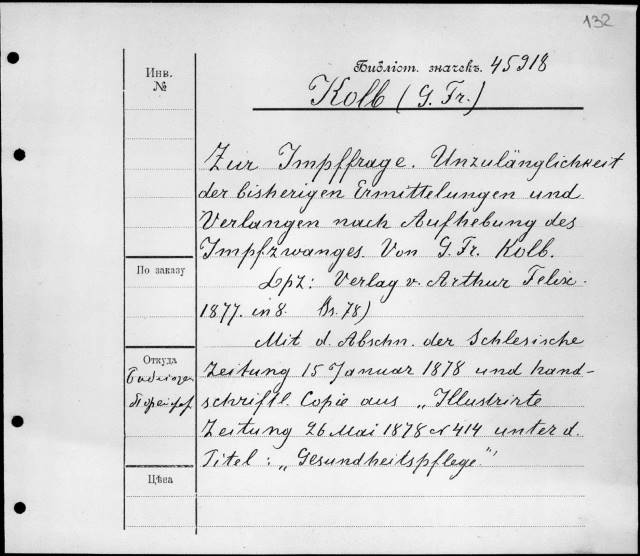 132
Библіот. значекъ. 45918
Инв.
№
Kolb (G. Fr.)
Zur Impffrage. Unzulänglichkeit
der bisherigen Ermittelungen und
Verlangen nach Aufhebung des
Impfzwanges. Von G. Fr. Kolb.
По заказу
Lpz: Verlag v. Arthur Felix.
1877. in 8. Br. 78)
Mit d. Abschn. der Schlesische
Откуда
Zeitung 15 Januar 1878 und hand-
schriftl. Copie aus „Illustrirte
Zeitung 26 Mai 1878 № 414 unter d.
Titel: „Gesundheitspflege."
Цѣна